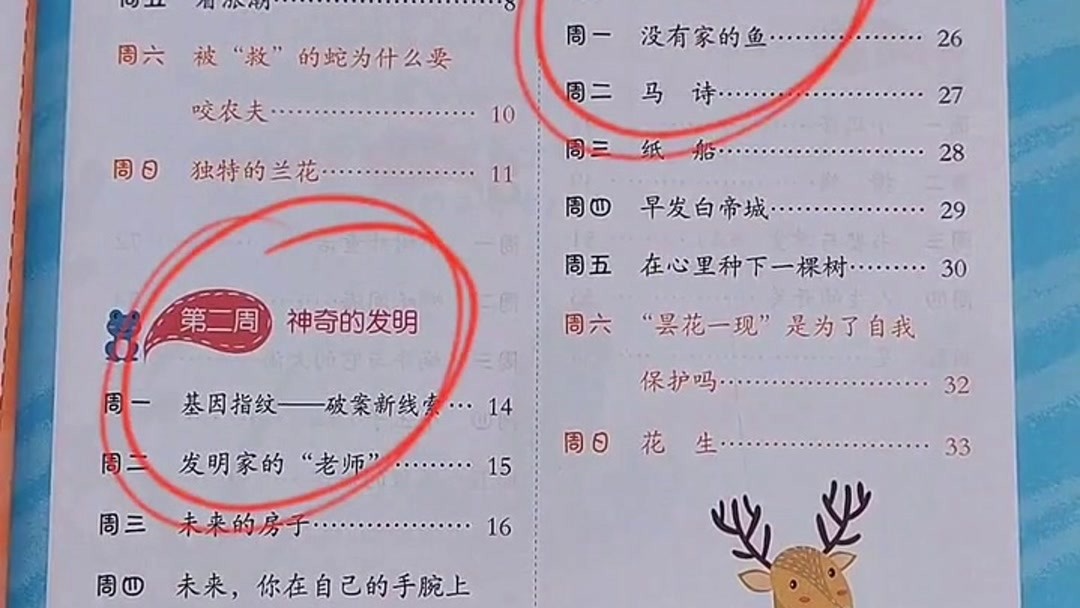 周五 看涨潮……8
周六 被“救”的蛇为什么要
咬农夫……10
周日 独特的兰花……11
第二周 神奇的发明
周一 基因指纹——破案新线索…14
周二 发明家的“老师”……15
周三 未来的房子……16
周四 未来，你在自己的手腕上
周一 没有家的鱼……26
周二 马 诗……27
周三 纸 船……28
周四 早发白帝城……29
周五 在心里种下一棵树……30
周六 “昙花一现”是为了自我
保护吗……32
周日 花 生……33